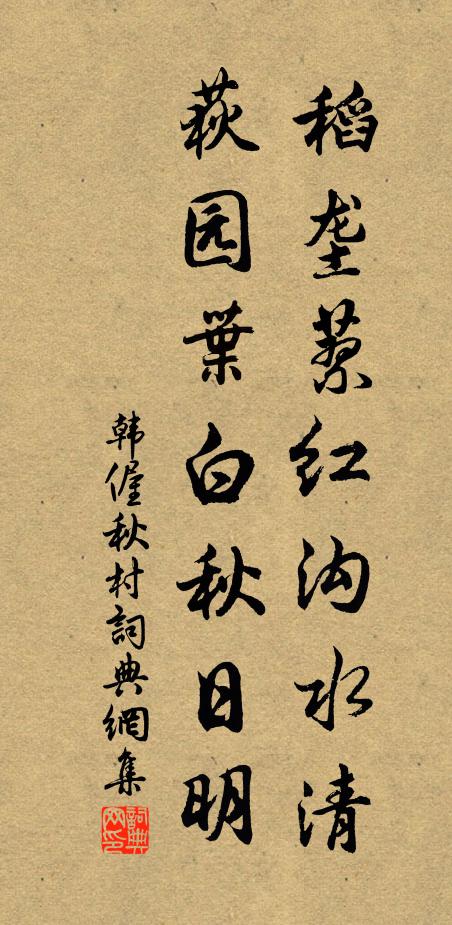 稻垄蓼红沟水清
荻园葉白秋日明
韩偓秋村詞典網集
詞典网印